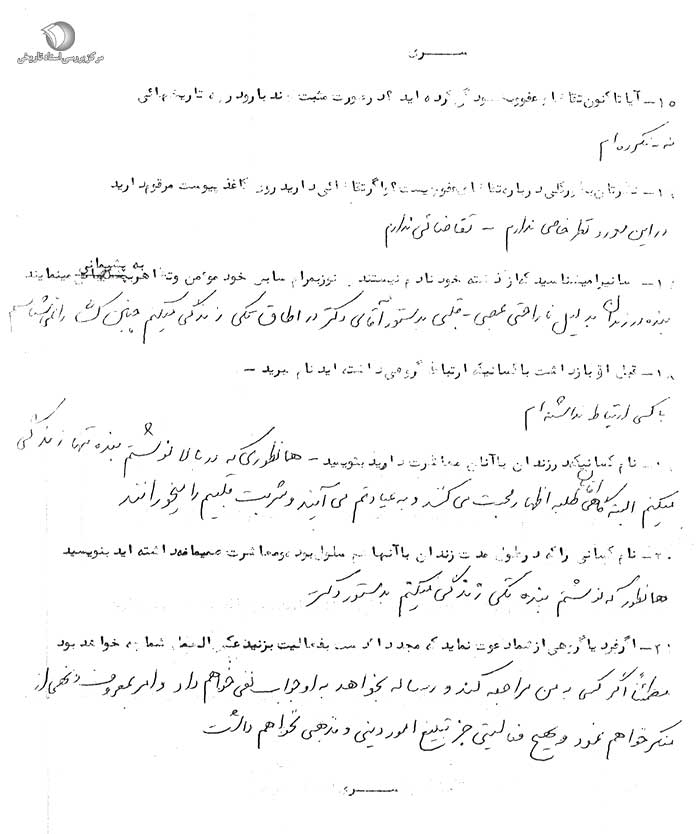 مرکز بررسی اسناد تاریخی
ســـری
۱۵ـ آیا تا کنون تقاضای عفو نموده اید ؟ در صورت مثبت بودن چند بار و در چه تاریخهائی
نه - نکرده ام
نظرتان بطور کلی درباره تقاضای عفو چیست ؟ اگر تقاضائی دارید روی کاغذ پیوست مرقوم دارید
در این مورد نظر خاصی ندارم – تقاضائی ندارم
میشناسید که از گذشته خود نادم نیستند و خود مومن وتظاهر به پشیمانی مینمایند
بنده در زندان بدلیل ناراحتی عصبی - قلبی بدستور آقای دکتر در اطاق تکی زندگی میکنم چنین کسی را نمی شناسم
قبل از بازداشت با کسانیکه ارتباط گروهی داشته اید نام ببرید –
با کسی ارتباط نداشته ام
نام کسانیکه در زندان با آنان معاشرت دارید بنویسید – همانطوری که در بالا نوشتم بنده تنها زندگی
میکنم البته گاهی آقایان طلبه اظهار محبت می کنند و به عیادتم می آیند و شربت قلبیم را میخورانند
۲۰ـ نام کسانی را که در طول مدت زندان با آنها هم سلول بوده و معاشرت صمیمانه داشته اید بنویسید
همانطور که نوشتم بنده تکی زندگی میکنم بدستور دکتر
۲۱ـ اگر فرد یا گروهی از شما دعوت نماید که مجددا دست بفعالیت بزنید عکس العمل شما چه خواهد بود
مطمئناً اگر کسی به من مراجعه کند و رساله بخواهد به او جواب نفی خواهم داد و امر بمعروف و نهی از
منکر خواهم نمود و بهیچ فعالیتی جز تبلیغ امور دینی و مذهبی نخواهم داشت
ســـری